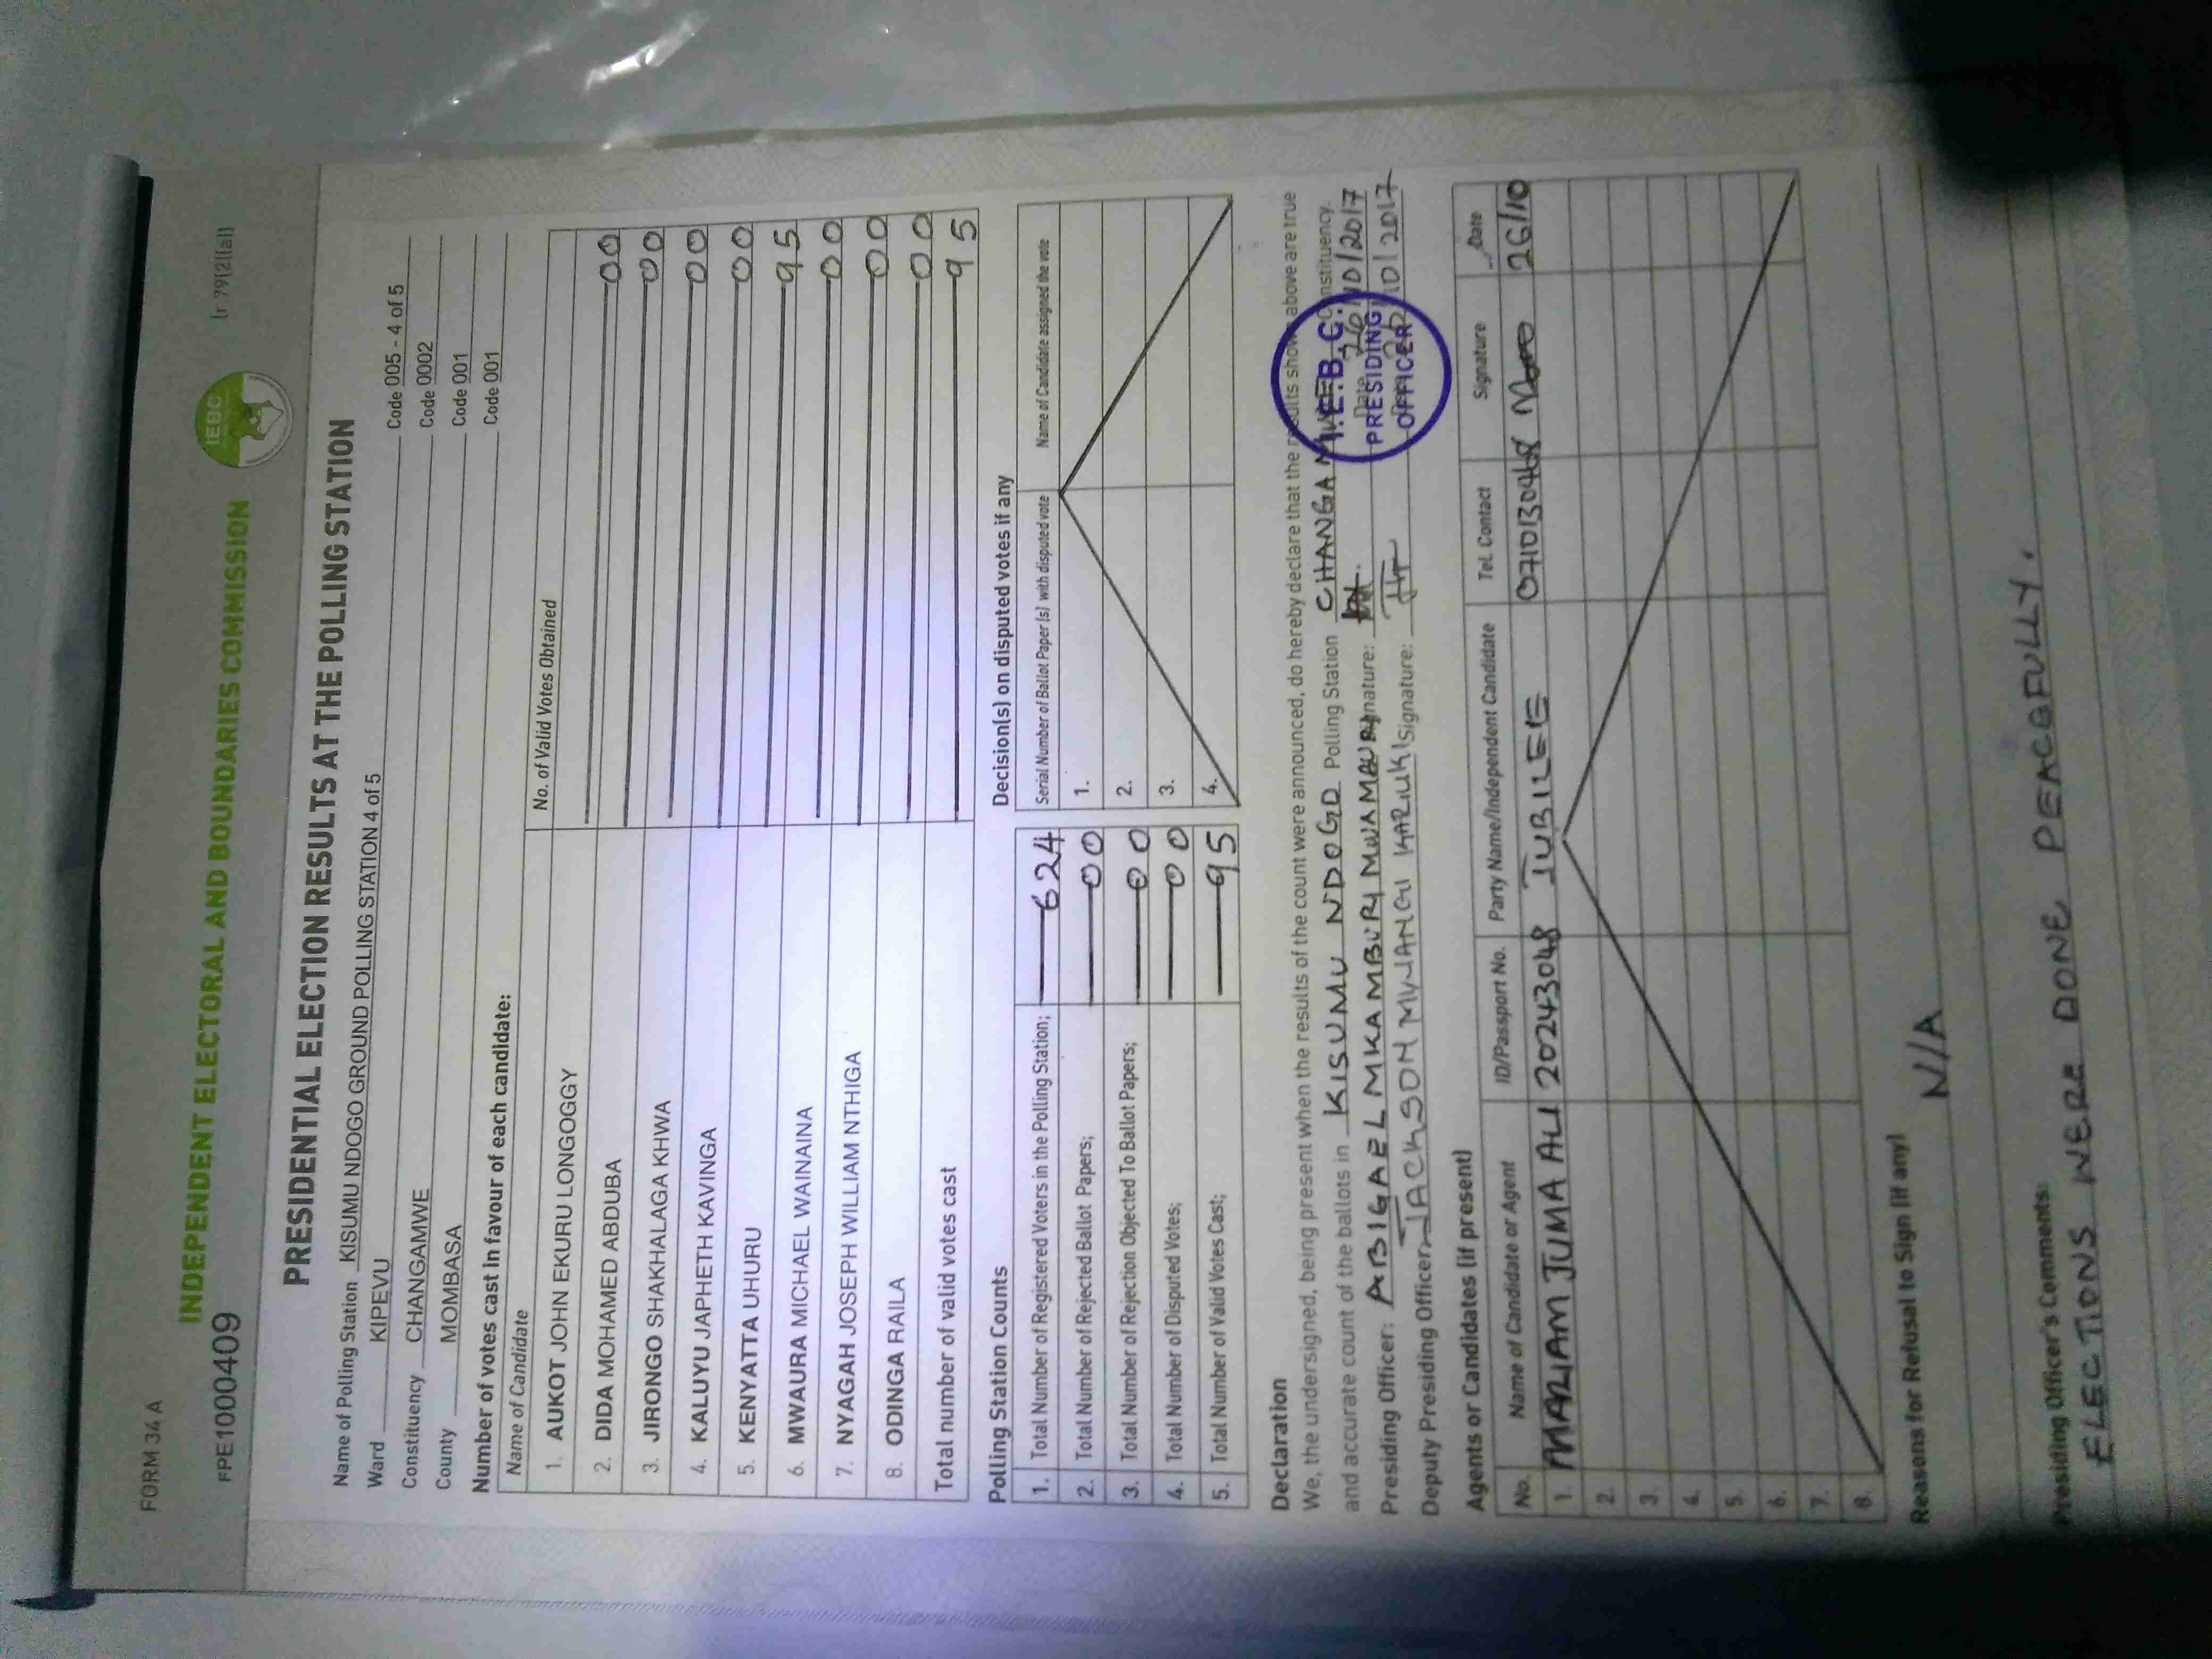 FORM 34 A
INDEPENDENT ELECTORAL AND BOUNDARIES COMMISSION
IEBC
(r 79(2)(a))
FPE1000409
PRESIDENTIAL ELECTION RESULTS AT THE POLLING STATION
Name of Polling Station KISUMU NDOGO GROUND POLLING STATION 4 of 5 Code 005 - 4 of 5
Ward KIPEVU Code 0002
Constituency CHANGAMWE Code 001
County MOMBASA Code 001
Number of votes cast in favour of each candidate:
Name of Candidate No. of Valid Votes Obtained
1. AUKOT JOHN EKURU LONGOGGY 00
2. DIDA MOHAMED ABDUBA 00
3. JIRONGO SHAKHALAGA KHWA 00
4. KALUYU JAPHETH KAVINGA 00
5. KENYATTA UHURU 95
6. MWAURA MICHAEL WAINAINA 00
7. NYAGAH JOSEPH WILLIAM NTHIGA 00
8. ODINGA RAILA 00
Total number of valid votes cast 95
Polling Station Counts
1. Total Number of Registered Voters in the Polling Station; 624
2. Total Number of Rejected Ballot Papers; 00
3. Total Number of Rejection Objected To Ballot Papers; 00
4. Total Number of Disputed Votes; 00
5. Total Number of Valid Votes Cast; 95
Decision(s) on disputed votes if any
Serial Number of Ballot Paper (s) with disputed vote Name of Candidate assigned the vote
1.
2.
3.
4.
Declaration
We, the undersigned, being present when the results of the count were announced, do hereby declare that the results shown above are true
and accurate count of the ballots in KISUMU NDOGO Polling Station CHANGAMWE Constituency.
Presiding Officer: ABIGAEL MKAMBURI MWAMAURI Signature: Date 26/10/2017
Deputy Presiding Officer: JACKSON MWANGI KARIUKI Signature: 26/10/2017
I.E.B.C.
PRESIDING
OFFICER
Agents or Candidates (if present)
No. Name of Candidate or Agent ID/Passport No. Party Name/Independent Candidate Tel. Contact Signature Date
1. MARIAM JUMA ALI 20243048 JUBILEE 26/10
2.
3.
4.
5.
6.
7.
8.
Reasons for Refusal to Sign (if any)
N/A
Presiding Officer's Comments:
ELECTIONS WERE DONE PEACEFULLY.